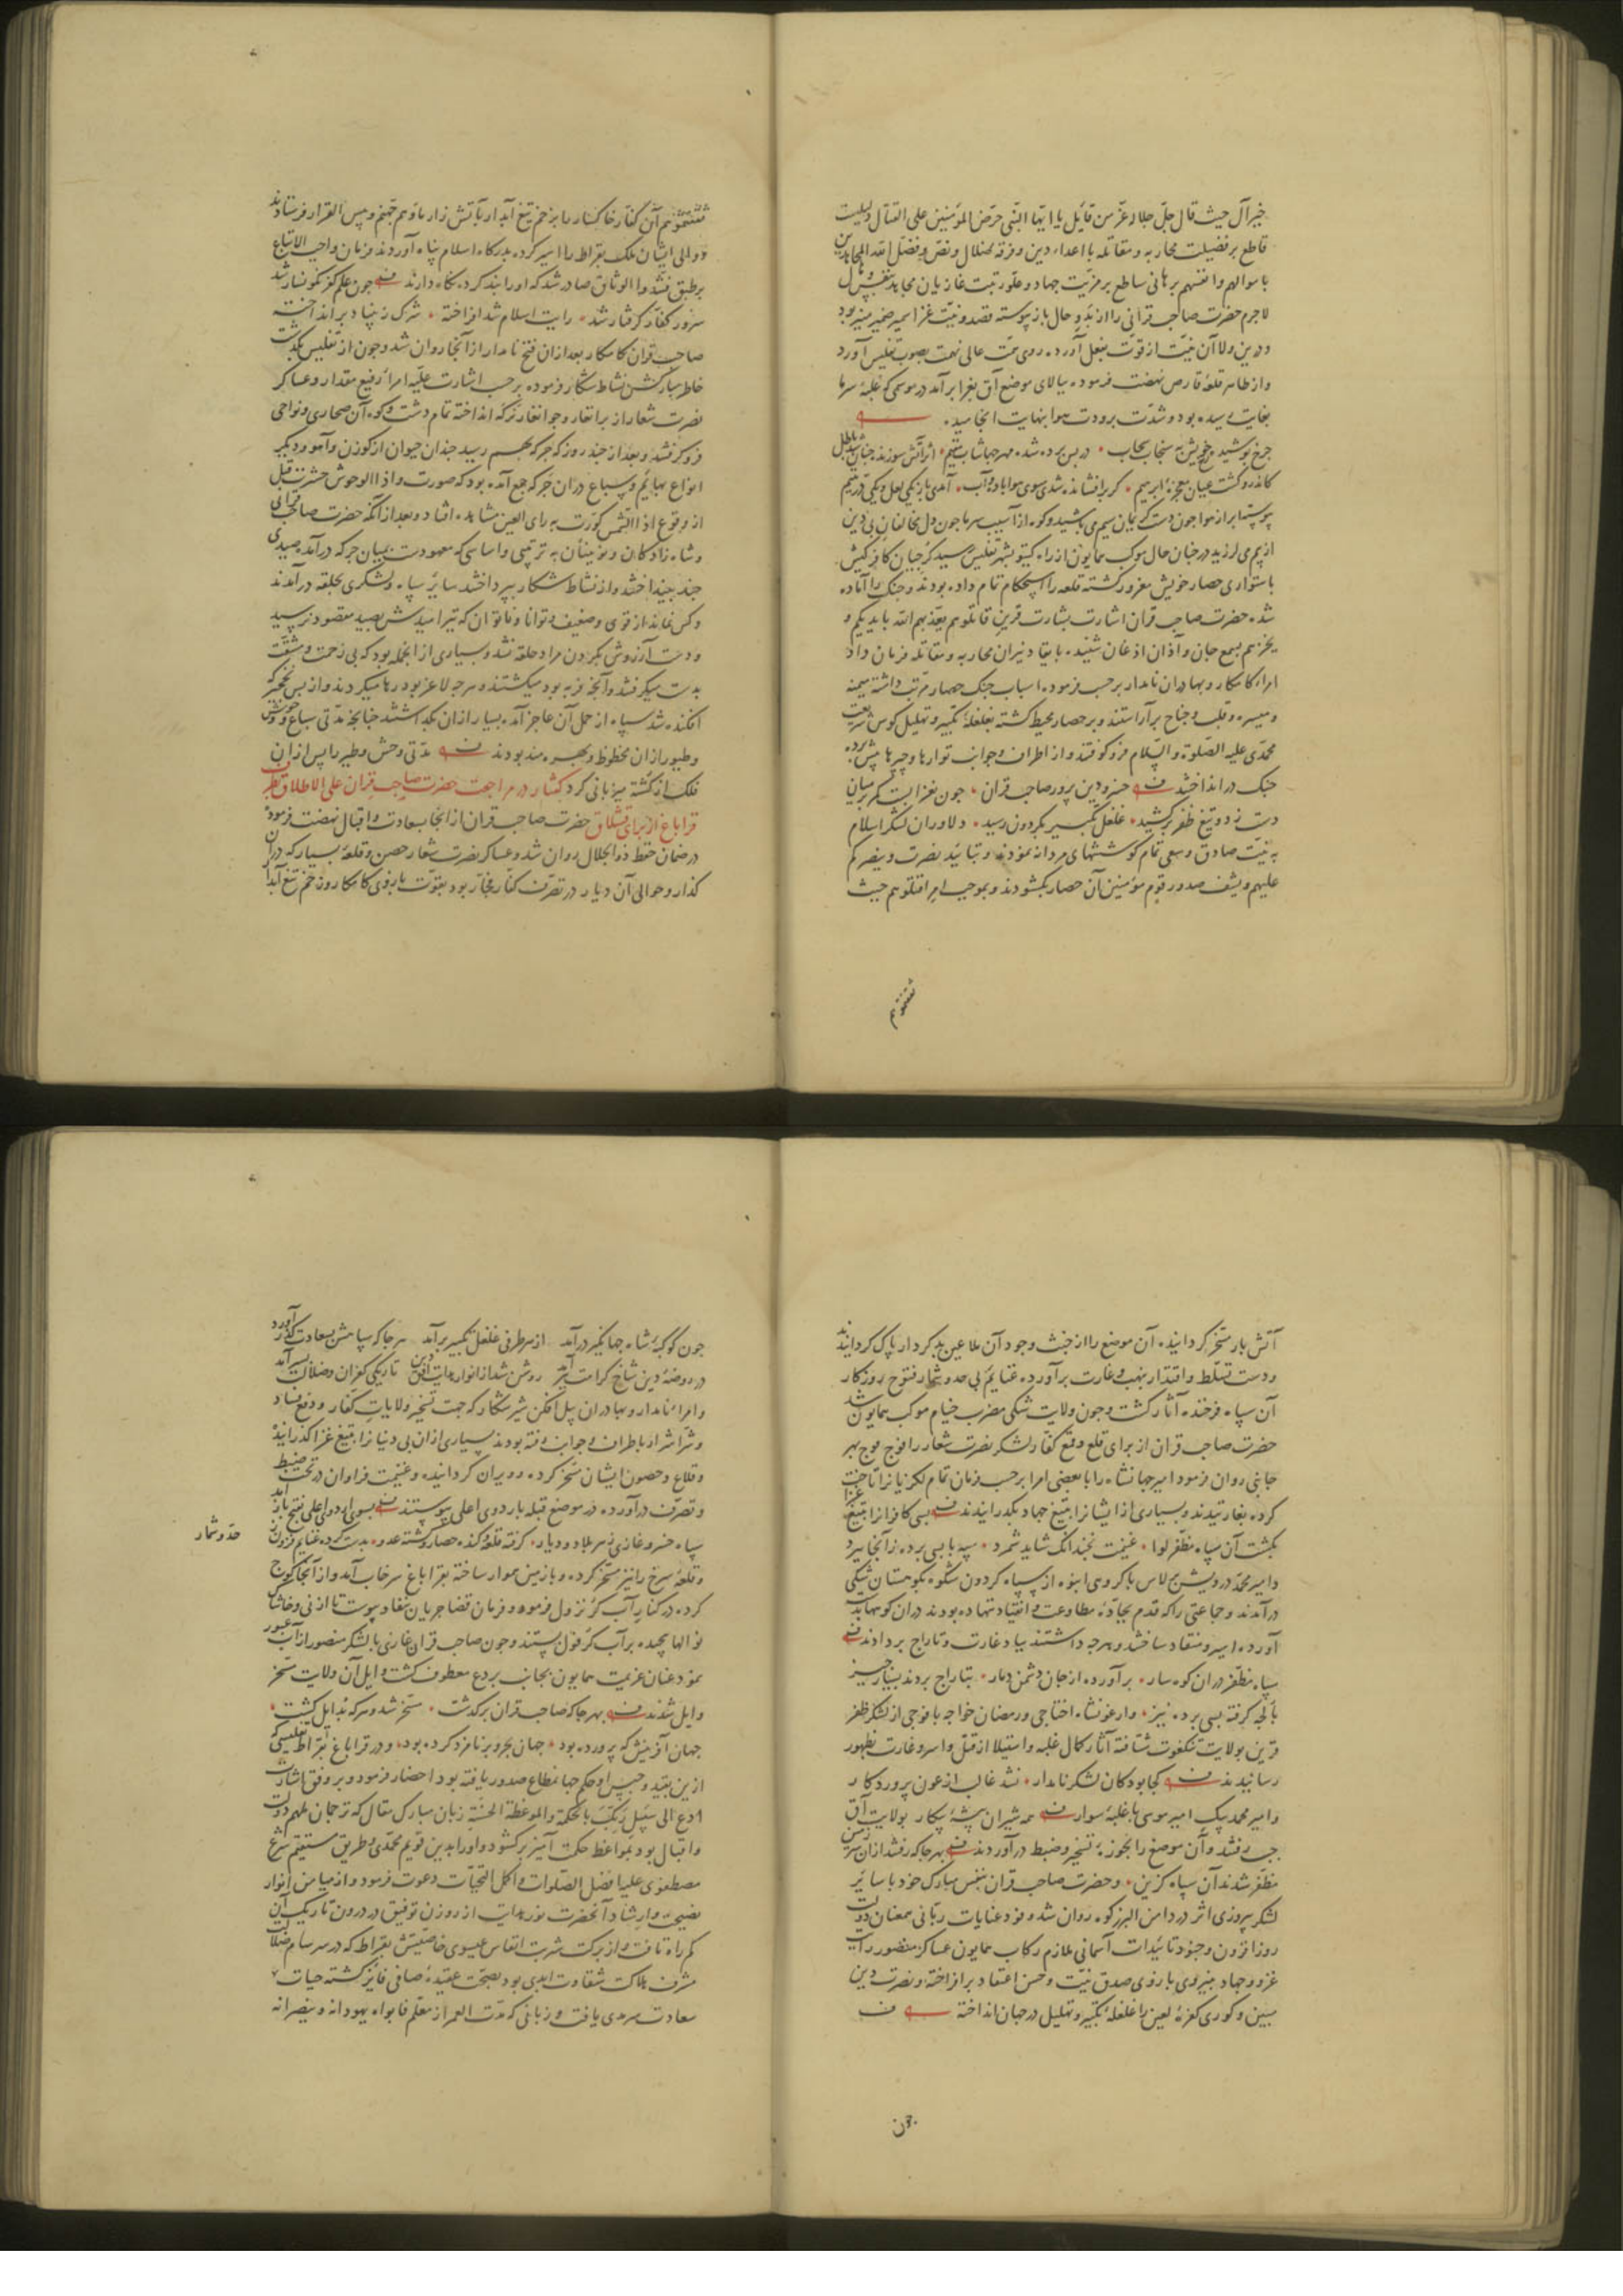 خیر آل حیث قال جل جلاله و عز من قائل یا ایها النبی حرض المؤمنین علی القتال دلیلیست
قاطع بر فضیلت محاربه و مقاتله با اعداء دین و فرقه ضلال و نص و فضل الله المجاهدین
باموالهم و انفسهم برهانی ساطع بر مزیت جهاد و علو رتبت غازیان مجاهد
لاجرم حضرت صاحب قرانی را از بدو حال باز پیوسته قصد و نیت غزا سمیر ضمیر منیر بود
و درین ولا آن نیت از قوت بفعل آورده روی همت عالی نهمت بصوب تفلیس آورد
و از ظاهر قلعه قارص نهضت فرموده ببالای موضع آق بغرا برآمد در موسمی که غلبه سرما
بغایت رسیده بود و شدت برودت هوا بنهایت انجامیده
چرخ بپوشید رخ خویش به سنجاب سحاب
کاندرو گشت عیان معجزه ابراهیم
پوستها بر از هوا چون دست کریمان سیم می پاشید و کوه از آسیب سرما چون دل مخالفان بی دین
از بیم می لرزید در چنان حال موکب همایون از راه کیتو بشهر تفلیس رسید گرجیان کافرکیش
باستواری حصار خویش مغرور گشته قلعه را استحکام تمام داده بودند و جنک را آماده
شده حضرت صاحب قران اشارت بشارت قرین قاتلوهم یعذبهم الله بایدیکم و
یخزهم بسمع جان و آذان اذعان شنیده بایقاد نیران محاربه و مقاتله فرمان داد
امراء کامکار و بهادران نامدار بر حسب فرموده اسباب جنک حصار مرتب داشته میمنه
و میسره و قلب و جناح برآراستند و بر حصار محیط گشته بغلغله تکبیر و تهلیل کوس شریعت
محمدی علیه الصلوة و السلام فرو کوفتند و از اطراف و جوانب توارها و چپرها پیش برده
جنک در انداختند خسرو دین پرور صاحب قران چون بغزا بست کمر بر میان
دست زد و تیغ ظفر برکشید غلغل تکبیر بگردون رسید دلاوران لشکر اسلام
به نیت صادق و سعی تمام کوششهای مردانه نمودند و بتایید نصرت و ینصرکم
علیهم و یشف صدور قوم مؤمنین آن حصار بگشودند و بموجب امر اقتلوهم حیث
ثقفتموهم
ثقفتموهم آن کفار خاکسار را بزخم تیغ آبدار بآتش زار ماویهم جهنم و بئس القرار فرستادند
و والی ایشان ملک بقراط را اسیر کرده بدرگاه اسلام پناه آوردند و فرمان واجب الاتباع
بر طبق فشدوا الوثاق صادر شد که او را بند کرده نگاه دارند چون علم کفر نگونسار شد
سرور کفار گرفتار شد رایت اسلام شد افراخته شرک ز بنیاد برانداخته
صاحب قران کامکار بعد از ان فتح نامدار از انجا روان شد و چون از تفلیس بگذشت
خاطر مبارکش نشاط شکار فرموده بر حسب اشارت علیه امراء رفیع مقدار و عساکر
نصرت شعار از برانغار و جوانغار نرکه انداخته تمام دشت و کوه آن صحاری و نواحی
فرو گرفتند و بعد از چند روز که جرکه بهم رسید چندان حیوان از گوزن و آهو و دیگر
انواع بهایم و سباع در ان جرکه جمع آمده بود که صورت و اذا الوحوش حشرت قبل
از وقوع اذا الشمس کورت برای العین مشاهده افتاد و بعد از آنکه حضرت صاحب قرانی
و شاه زادکان و نوینان به ترتیبی و اساسی که معهودست بمیان جرکه درآمده صیدی
چند بینداختند و از نشاط شکار بپرداختند سایر سپاه و لشکری بحلقه درآمدند
و کس نماند از قوی و ضعیف و توانا و ناتوان که تیر امیدش بصید مقصود نرسید
و دست آرزوش بگردن مراد حلقه نشد و بسیاری از انجمله بود که بی زحمت و مشقت
بدست میگرفتند و آنچه فربه بود میکشتند و هرچه لاغر بود رها میکردند و از بس نخجیر که
افکنده شد سپاه از حمل آن عاجز آمده بسیار از ان بگذاشتند چنانچه مدتی سباع و وحوش
و طیور از ان محظوظ و بهره مند بودند مدتی وحش و طیر را پس از ان
فلک از کشته میزبانی کرد گفتار در مراجعت حضرت صاحب قران علی الاطلاق بطرف
قراباغ از برای قشلاق حضرت صاحب قران از انجا بسعادت و اقبال نهضت فرموده
در ضمان حفظ ذو الجلال روان شد و عساکر نصرت شعار حصن و قلعه بسیار که در ان
گذار و حوالی آن دیار در تصرف کفار فجار بود بقوت بازوی کامکار و زخم تیغ آبدار
آتش بار مسخر گردانیده آن موضع را از خبث وجود آن ملاعین بدکردار پاک گردانیدند
و دست تسلط و اقتدار بنهب و غارت برآورده غنایم بی حد و شمار فتوح روزگار
آن سپاه فرخنده آثار گشت و چون ولایت شکی مضرب خیام موکب همایون شد
حضرت صاحب قران از برای قلع و قمع کفار لشکر نصرت شعار را فوج فوج بهر
جانبی روان فرمود امیر جهانشاه را با بعضی امرا بر حسب فرمان تمام لکزیانرا تاخت
کرده بغارتیدند و بسیاری از ایشانرا بتیغ جهاد بگذرانیدند بسی کافرانرا بتیغ غزا
بکشت آن سپاه مظفر لوا غنیمت نچندانک شاید شمرد سپه با بسی برده ز آنجا ببرد
و امیر محمد درویش برلاس با گروهی انبوه از سپاه گردون شکوه بکوهستان شکی
درآمدند و جماعتی را که قدم بجاده مطاوعت و انقیاد ننهاده بودند در ان کوهها بدست
آورده اسیر و منقاد ساختند و هرچه داشتند بباد غارت و تاراج بردادند
سپاه مظفر در ان کوهسار برآورده از جان دشمن دمار بتاراج بردند بسیار چیز
بالجه گرفته بسی برده نیز و ارغونشاه اختاجی و رمضان خواجه با فوجی از لشکر ظفر
قرین بولایت تنکغوت شتافته آثار کمال غلبه و استیلا از قتل و اسر و غارت بظهور
رسانیدند کجا بود کان لشکر نامدار نشد غالب از عون پروردگار
و امیر محمد بیک امیر موسی با غلبه سوار همه شیران بیشه پیکار بولایت آق
جب رفتند و آن موضع را بحوزه تسخیر و ضبط درآوردند بهر جا که رفتند از ان سرزمین
مظفر شدند آن سپاه گزین و حضرت صاحب قران بنفس مبارک خود با سایر
لشکر پیروزی اثر در دامن البرز کوه روان شد و فود عنایات ربانی همعنان دولت
روزافزون و جنود تاییدات آسمانی ملازم رکاب همایون عساکر منصور رایت
غزو و جهاد بنیروی بازوی صدق نیت و حسن اعتقاد برافراخته و نصرت دین
مبین و کوری کفره لعین را غلغله تکبیر و تهلیل در جهان انداخته
چون
چون کوکبه شاه جهانگیر درآمد از هر طرفی غلغل تکبیر برآمد هر جا که سپاهش بسعادت گذر آورد
در روضه دین شاخ کرامت ببر آمد روشن شد از انوار هدایت افق دین تاریکی کفران و ضلالت بسر آمد
و امراء نامدار و بهادران پیل افکن شیر شکار که جهت تسخیر ولایات کفار و دفع فساد
و شر اشرار باطراف و جوانب رفته بودند بسیاری از ان بی دینانرا بتیغ غزا گذرانیده
و قلاع و حصون ایشان مسخر کرده و ویران گردانیده و غنیمت فراوان در تحت ضبط
و تصرف درآورده در موضع قبله باردوی اعلی پیوستند بسوی اردوی اعلی بفتح باز آمد
سپاه خسرو غازی ز هر بلاد و دیار گرفته قلعه و کنده حصار و کشته عدو بدست کرده غنایم فزون ز
حد و شمار
و قلعه سرخ را نیز مسخر کرده و با زمین هموار ساخته بقراباغ سرخاب آمد و از آنجا کوچ
کرده در کنار آب کر نزول فرموده و فرمان قضا جریان بنفاذ پیوست تا از نی و خاشاک
نوالها پیچیده بر آب کر قول بستند و چون صاحب قران غازی با لشکر منصور از آب عبور
نمود عنان عزیمت همایون بجانب بردع معطوف گشت و ایل آن ولایت مسخر
و ایل شدند بهر جا که صاحب قران برگذشت مسخر شد و هر که بد ایل گشت
جهان آفرینش که پرورده بود جهان بحر و بر نامزد کرده بود و در قراباغ بقراط تفلیسی که
ازین بقید و حبس او حکم جهانمطاع صدور یافته بود احضار فرمود و بر وفق اشارت
ادع الی سبیل ربک بالحکمة و الموعظة الحسنة زبان مبارک مقال که ترجمان ملهم دولت
و اقبال بود بمواعظ حکمت آمیز برگشود و او را بدین قویم محمدی و طریق مستقیم شرع
مصطفوی علیه افضل الصلوات و اکمل التحیات دعوت فرمود و از میامن انوار
نصیحت و ارشاد آنحضرت نور هدایت از روزن توفیق در درون تاریک آن
گم راه تافت و از برکت شربت انفاس عیسوی خاصیتش بقراط که در سرسام ضلالت
مشرف هلاکت شقاوت ابدی بود بصحت عقیده صافی فایز گشته حیات
سعادت سرمدی یافت و زبانی که مدت العمر از معلم فابواه یهودانه و ینصرانه